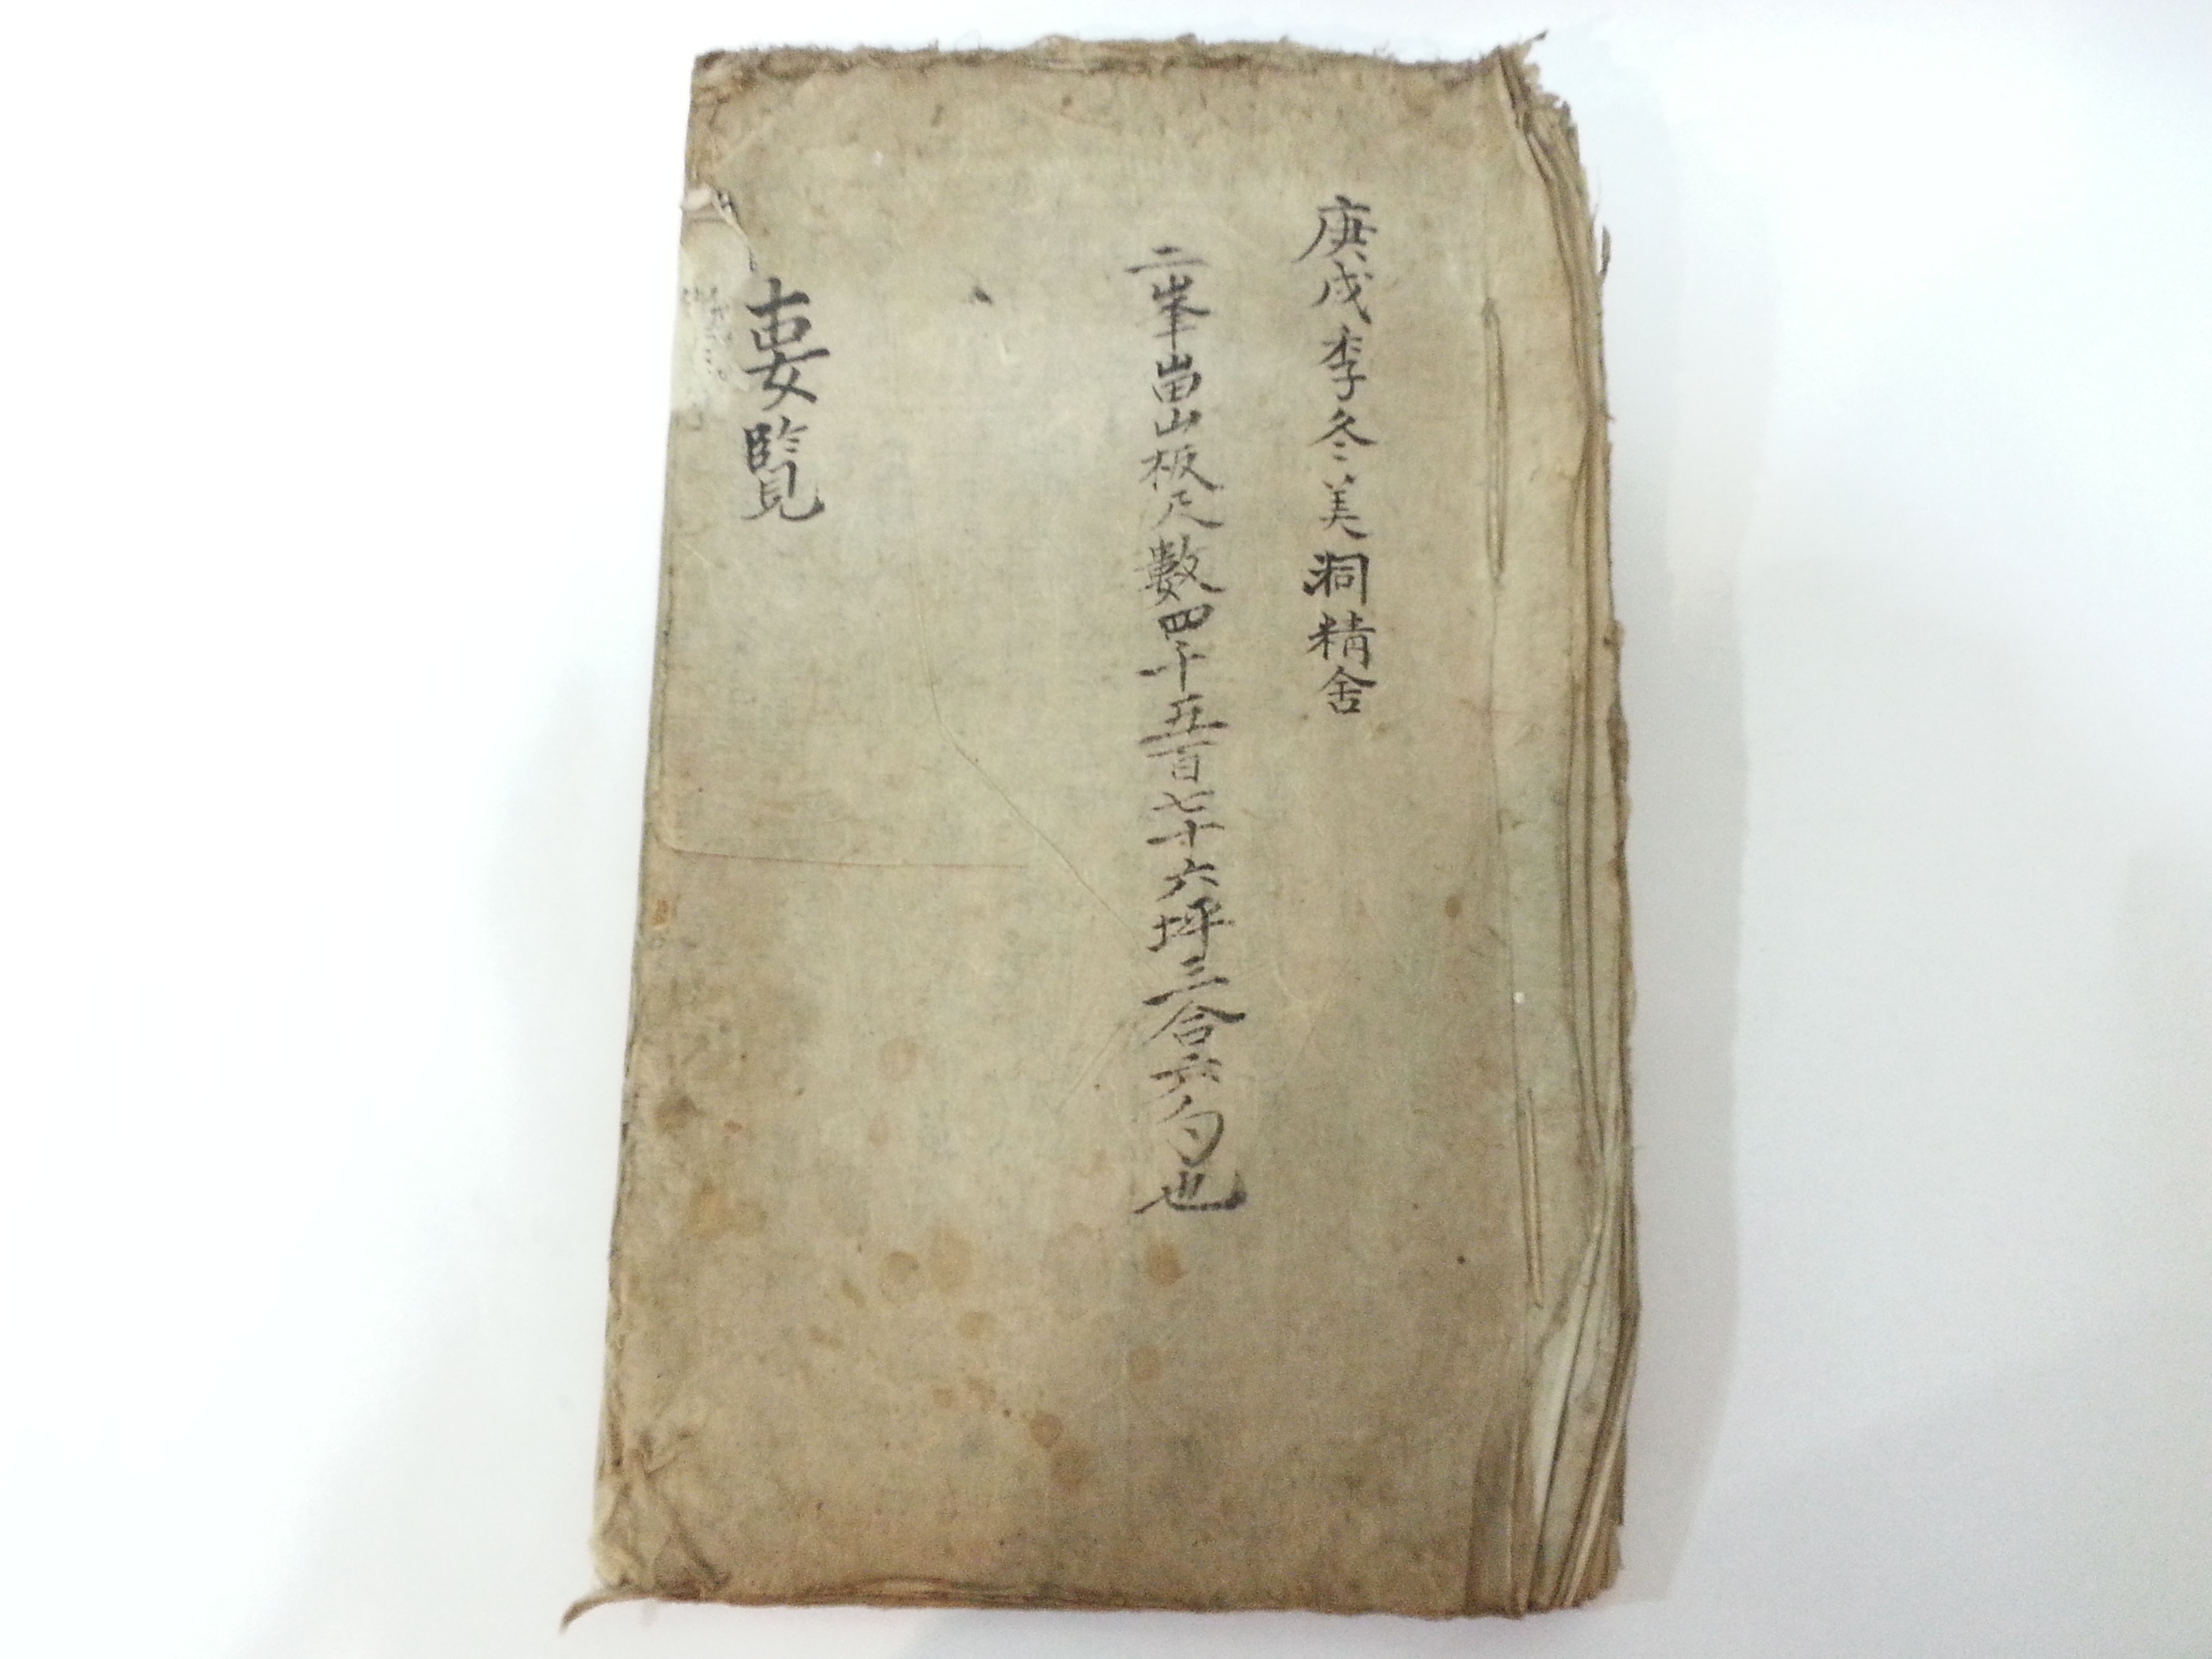 庚戌季冬美洞精舍
二峯畓山板尺數四千五百七十六坪三合六勺也
要覽